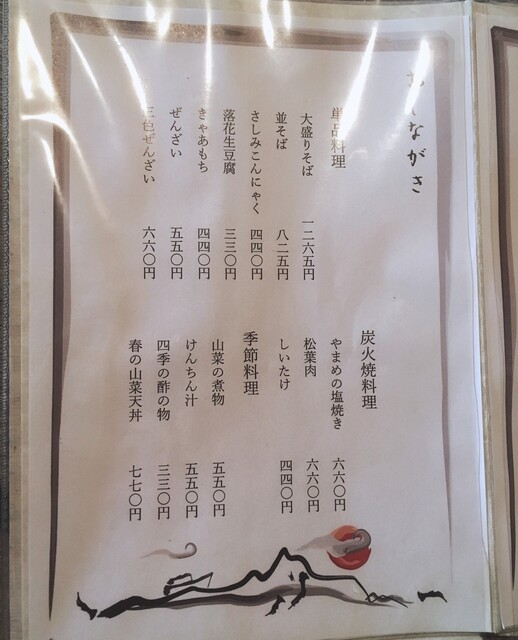 おしながき
単品料理
大盛りそば 一二六五円
並そば 八二五円
さしみこんにゃく 四四〇円
落花生豆腐 三三〇円
きゃあもち 四四〇円
ぜんざい 五五〇円
三色ぜんざい 六六〇円
炭火焼料理
やまめの塩焼き 六六〇円
松葉肉 六六〇円
しいたけ 四四〇円
季節料理
山菜の煮物 五五〇円
けんちん汁 五五〇円
四季の酢の物 三三〇円
春の山菜天丼 七七〇円